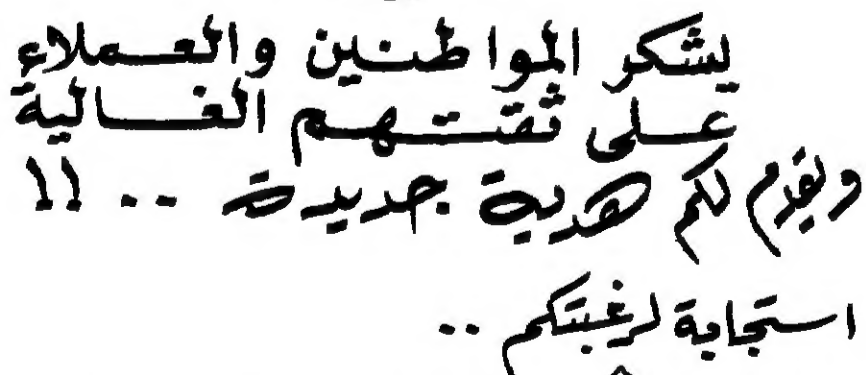 يشكر المواطنين والعملاء
على ثقتهم الغالية
ويقدم لكم هدية جديدة .. !!
استجابة لرغبتكم ..